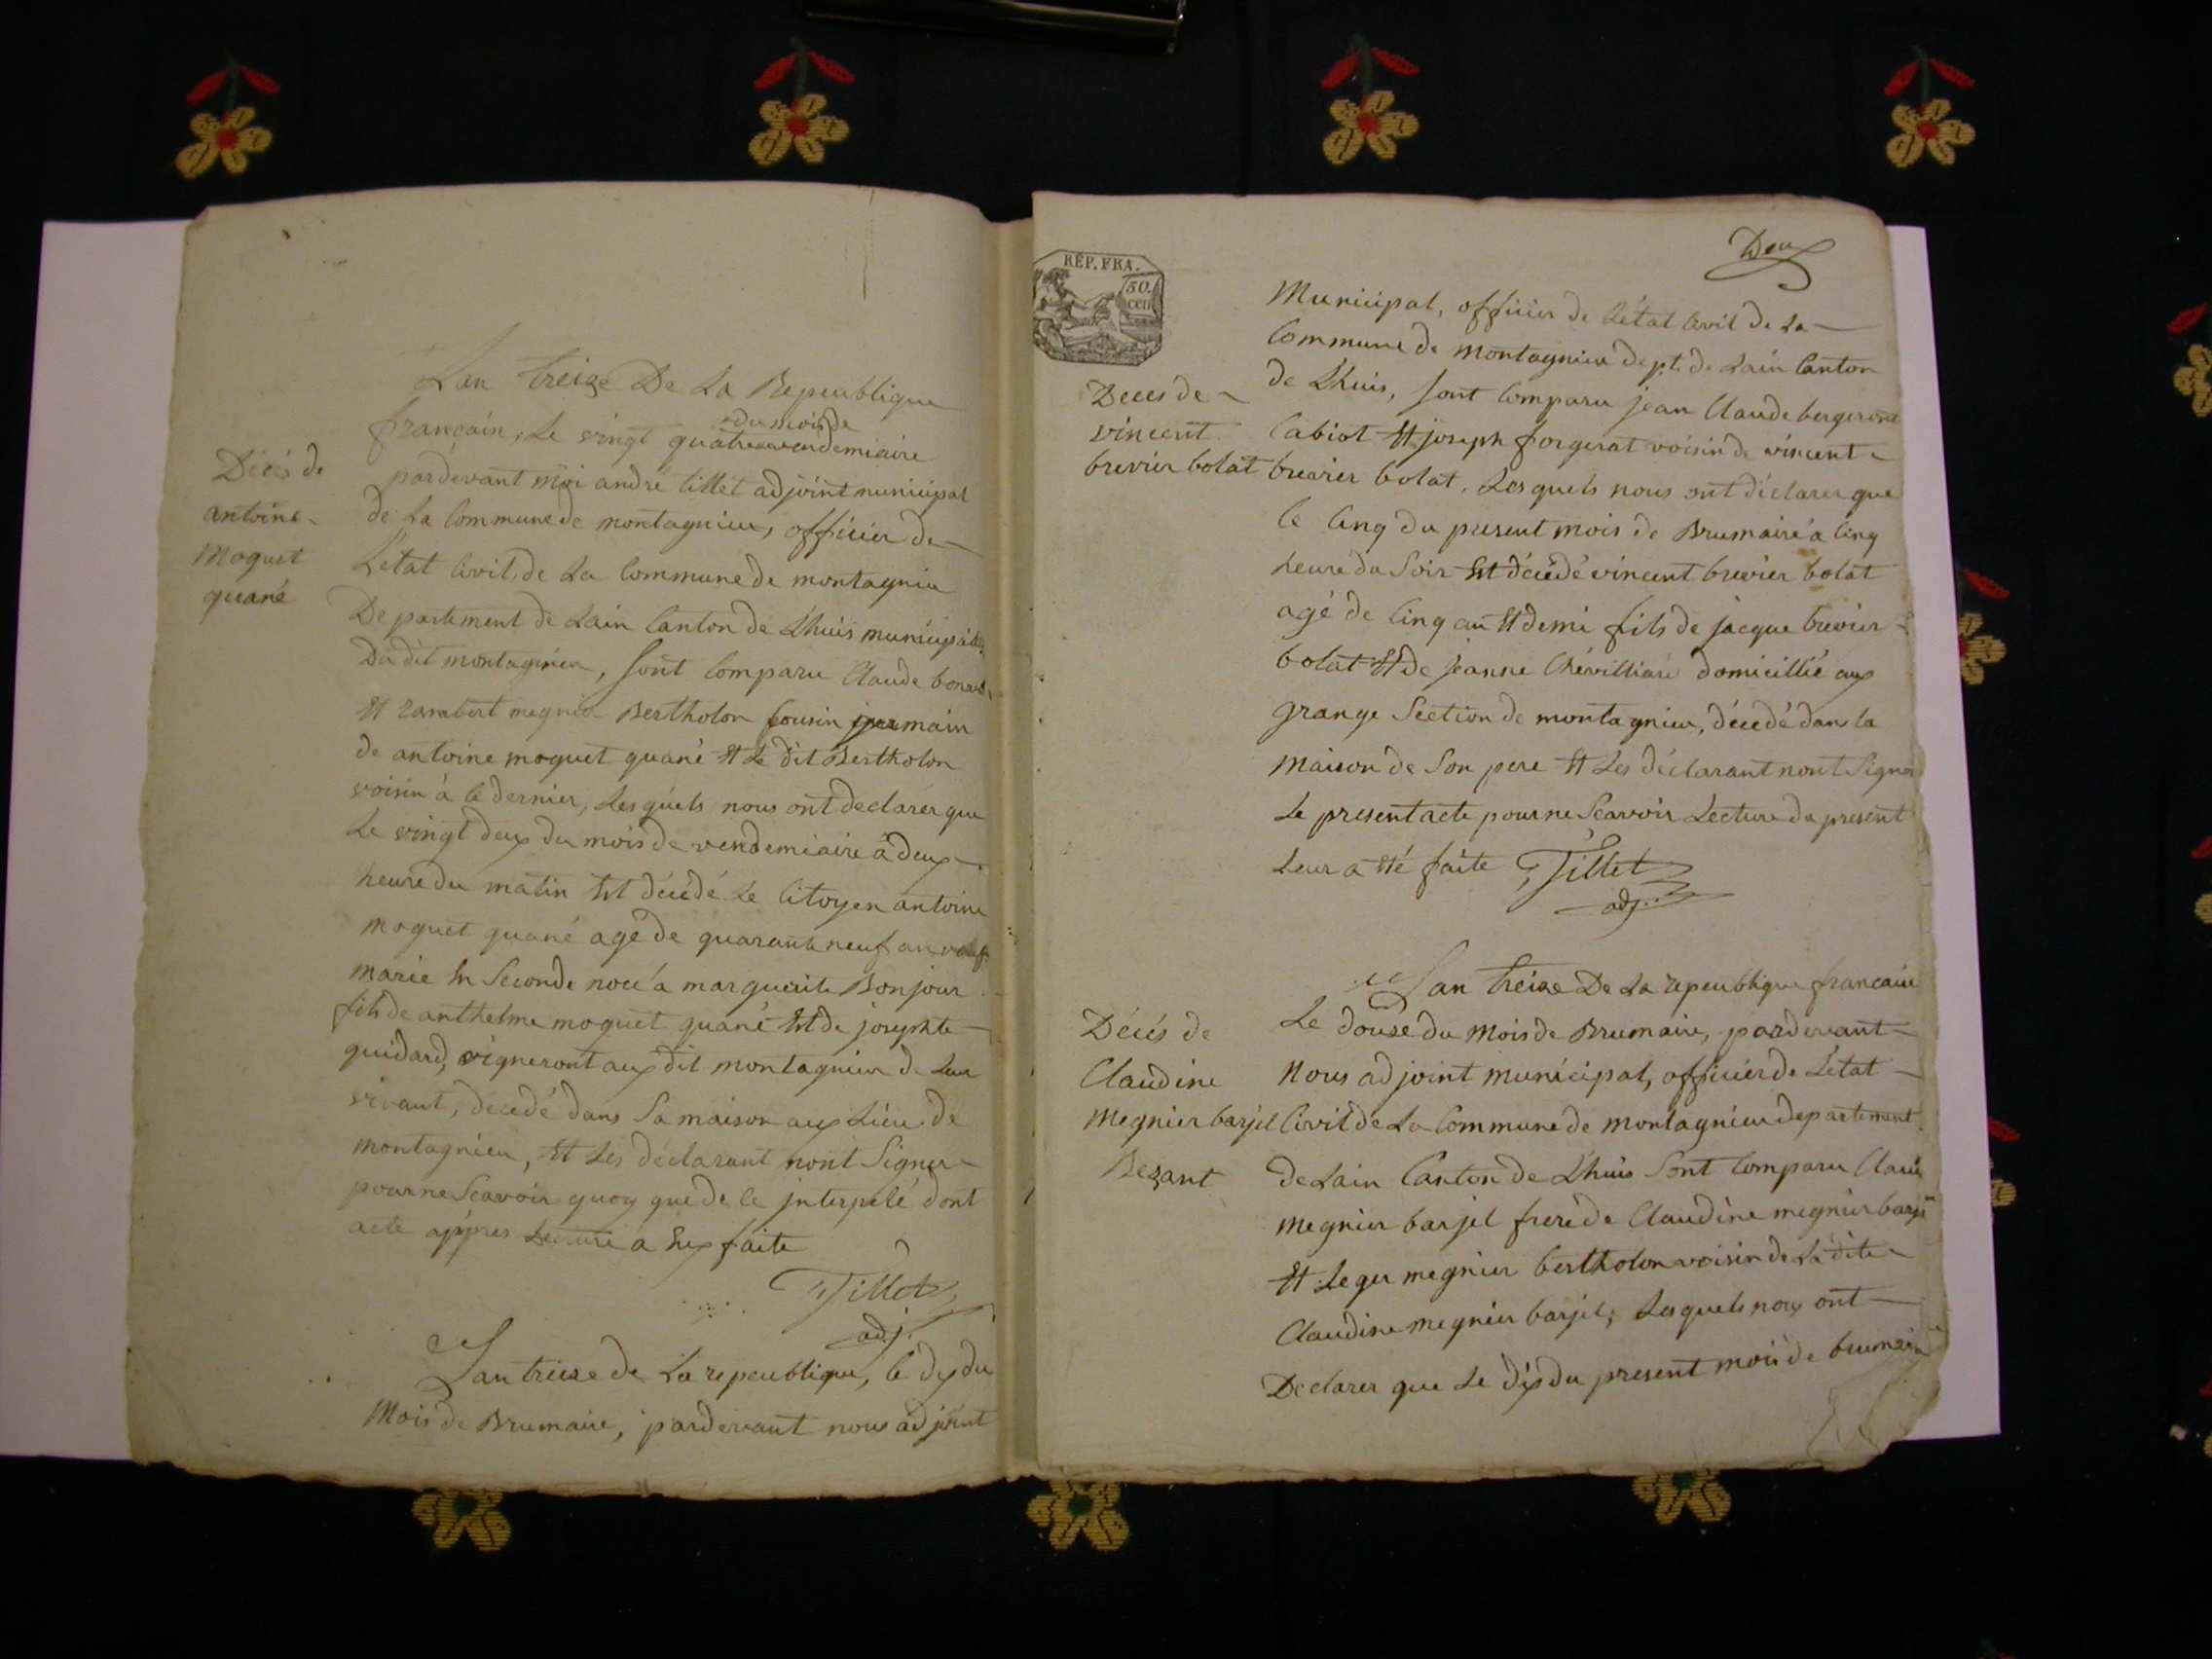 Lan treize De La Repeublique
francain, Le vingt quatre vendemiaire
du mois de
Décès de
antoine
Moquet
quané
pardevant moi andré tillet adjoint municipal
de la Commune de montagnieu, officier de
Letat Civil, de La Commune de montagnieu
Departement de Lain Canton de Lhuis
Du dit montagnieu, sont Comparu Claude
Et rambert megnier Bertholon Cousin germain
de antoine moquet quané Et Le dit Bertholon
voisin à ce dernier, Lesquels nous ont declarer que
Le vingt deux du mois de vendemiaire à deux
heure du matin Est décédé Le Citoyen antoine
moquet quané agé de quarante neuf an
marié En Seconde nocé a marguerite Bonjour
fils de anthelme moquet quané Et de josephte
guidard, vigneront aux dit montagnieu de Leur
vivant, decedé dans Sa maison aux Lieu de
montagnieu, Et Les déclarant nont Signer
pour ne Scavoir quoy que de ce jnterpelé dont
acte appres Lecture a Eux faite
Tillet
adj.
Lan treize de La repeublique, le dix du
Mois de Brumaire, pardevant nous adjoint
Deux
RÉP. FRA.
50.
cen
Municipal, officier de Létat Civil de La
Commune de montagnieu dept. de Lain Canton
de Lhuis, sont Comparu jean Claude bergeront
Deces de
vincent
brevier bolat
Cabiot Et joseph forgerat voisin de vincent
brevier bolat, Lesquels nous ont déclarer que
le Cinq du present mois de Brumaire à Cinq
heure du Soir Est décédé vincent brevier bolat
agé de Cinq an Et demi fils de jacque brevier
bolat Et de jeanne Chévilliard domicillié aux
grange Section de montagnieu, décédé dans la
maison de Son pere Et Les déclarant nont Signer
Le present acte pour ne Scavoir Lecture du present
Leur a Eté faite Tillet
adj.
Lan treize De La repeublique francaise
Le douze du Mois de Brumaire, pardevant
Décés de
Claudine
Megnier barjel
Bezant
Nous adjoint municipal, officier de Létat
Civil de La Commune de montagnieu departement
de Lain Canton de Lhuis Sont Comparu
megnier barjel frere de Claudine megnier barjel
Et Leger megnier bertholon voisin de La dite
Claudine megnier barjel, Lesquels nous ont
Declarer que Le dix du present mois de brumaire